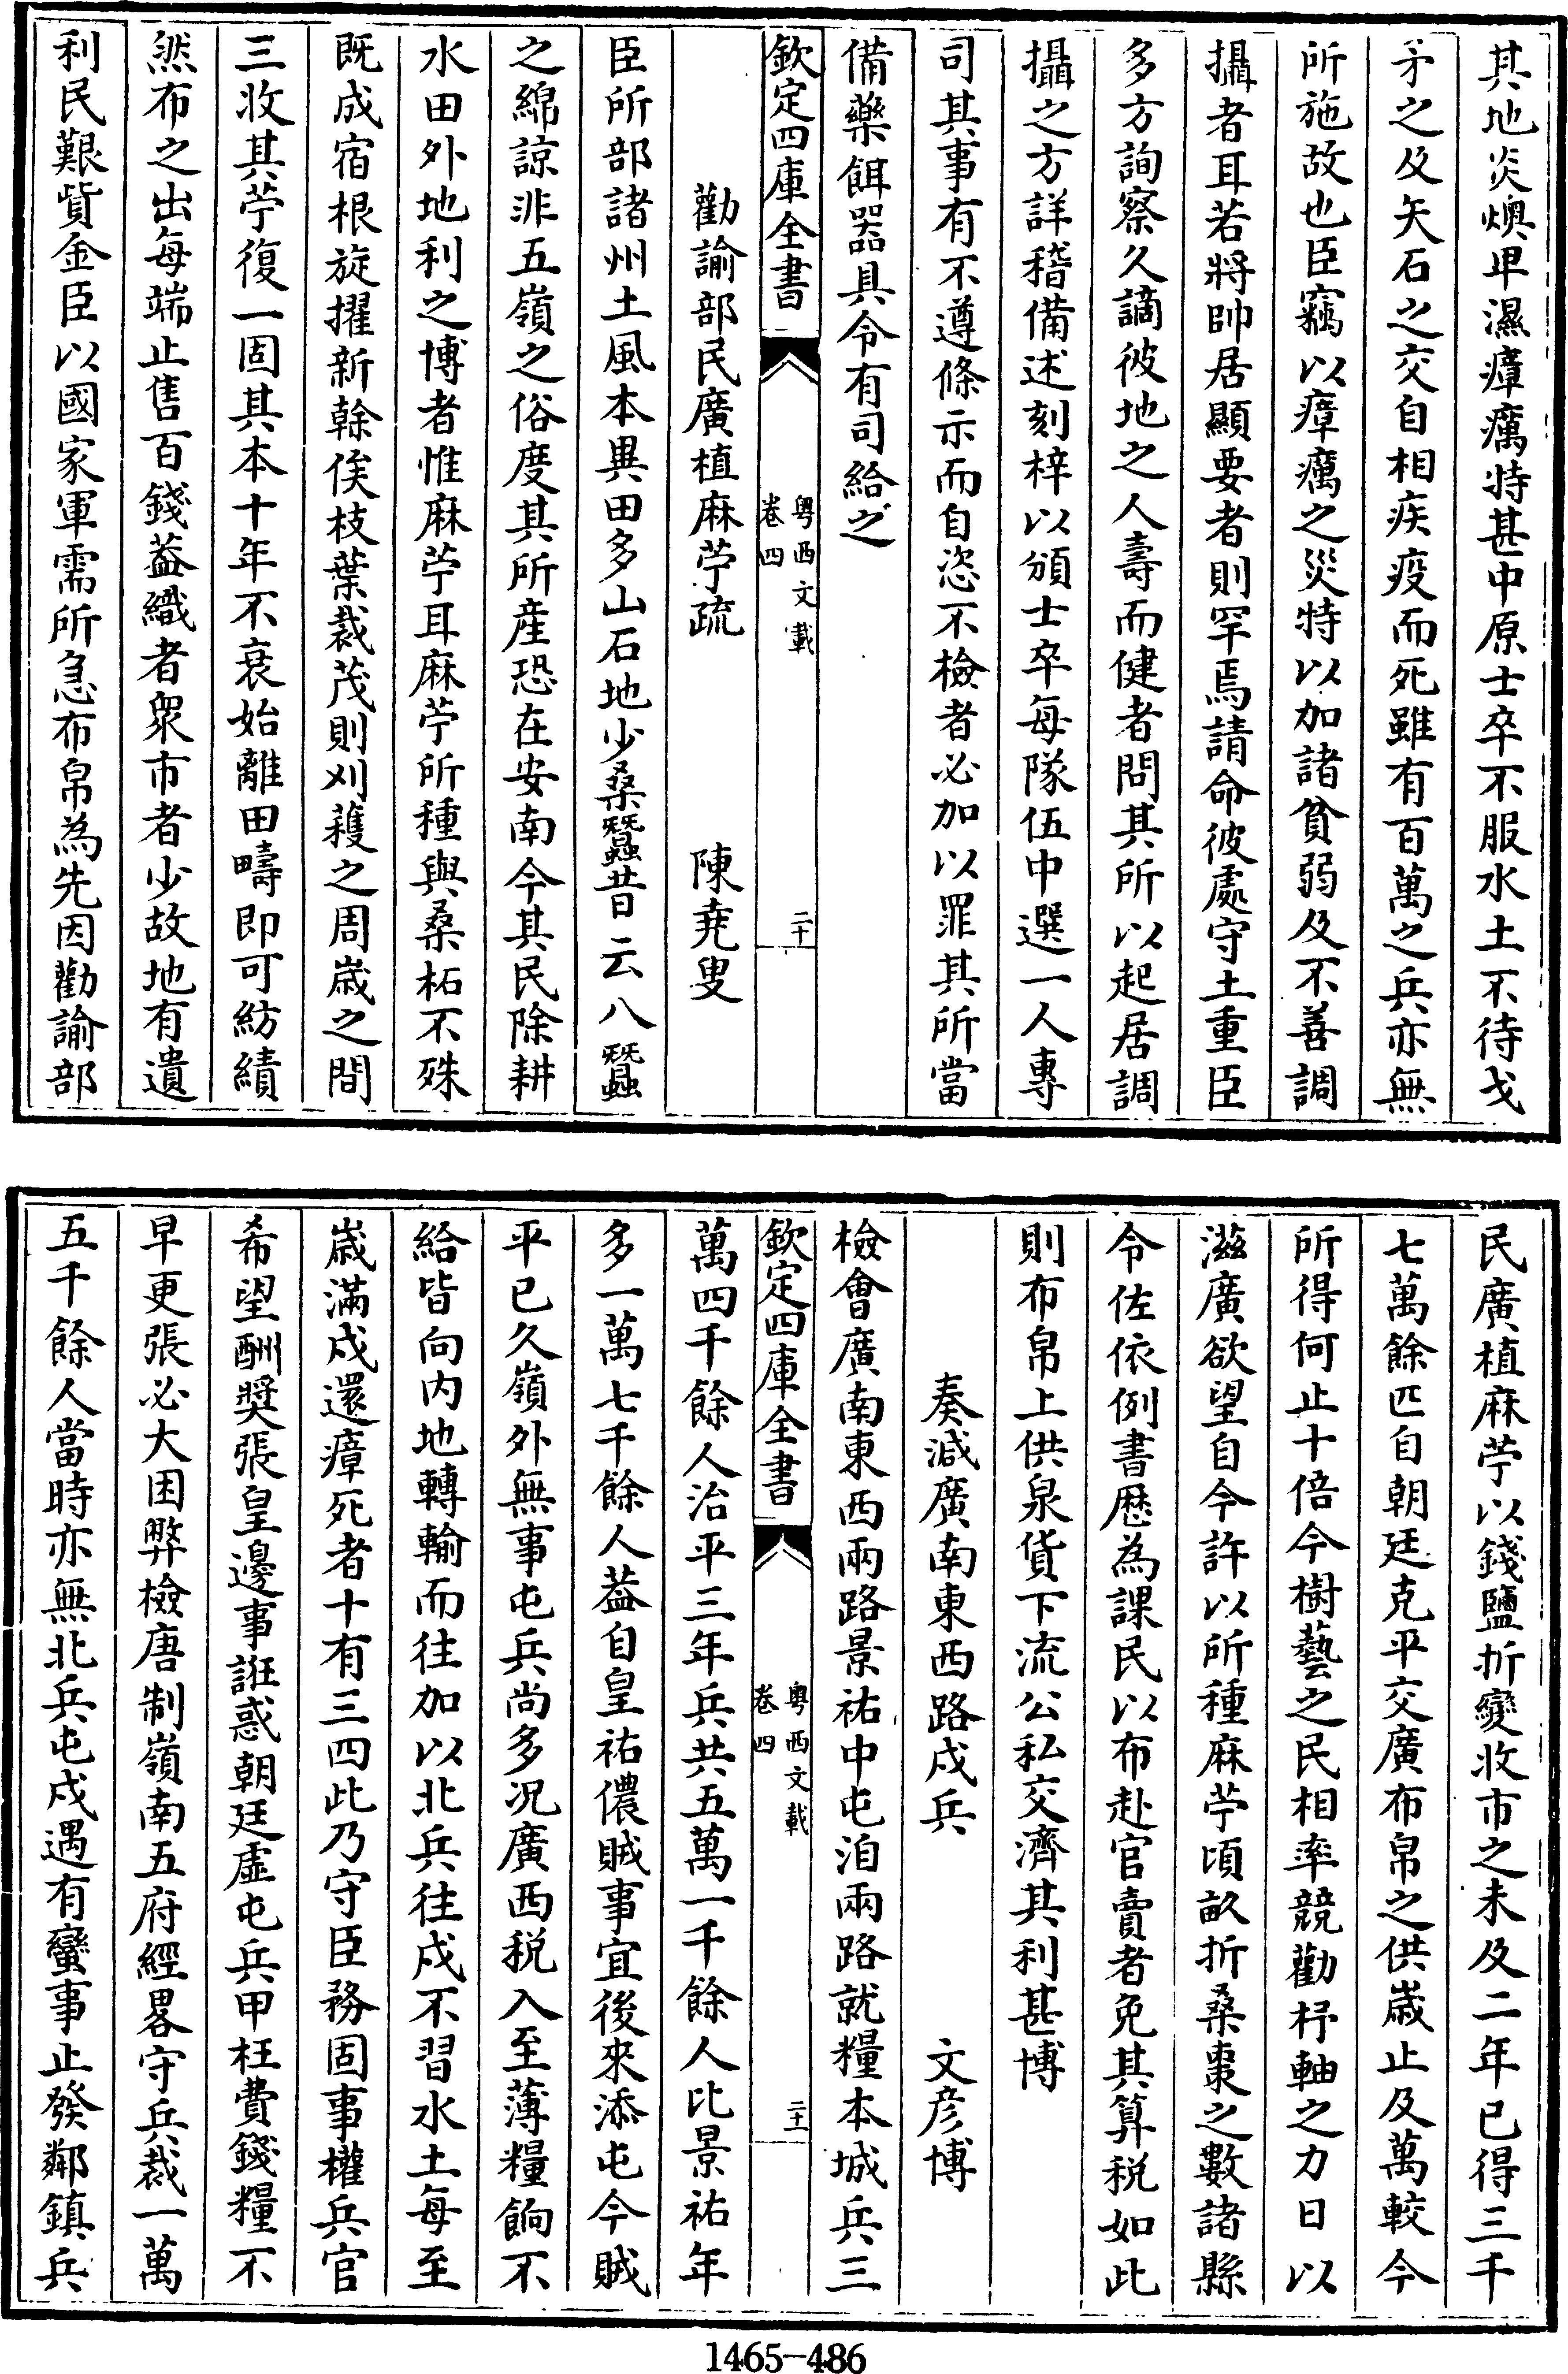 其地炎燠卑濕瘴癘特甚中原士卒不服水土不待戈
矛之及矢石之交自相疾疫而死雖有百萬之兵亦無
所施故也臣竊以瘴癘之災特以加諸貧弱及不善調
攝者耳若將帥居顯要者則罕焉請命彼處守土重臣
多方詢察久謫彼地之人壽而健者問其所以起居調
攝之方詳稽備述刻梓以頒士卒每隊伍中選一人專
司其事有不遵條示而自恣不檢者必加以罪其所當
備藥餌器具令有司給之
欽定四庫全書
粤西文載
卷四
二十
勸諭部民廣植麻苧疏 陳堯叟
臣所部諸州土風本異田多山石地少桑蠶昔云八蠶
之綿諒非五嶺之俗度其所産恐在安南今其民除耕
水田外地利之博者惟麻苧耳麻苧所種與桑柘不殊
既成宿根旋擢新榦俟枝葉裁茂則刈穫之周歲之間
三收其苧復一固其本十年不衰始離田疇即可紡績
然布之出每端止售百錢葢織者衆市者少故地有遺
利民艱貲金臣以國家軍需所急布帛為先因勸諭部
民廣植麻苧以錢鹽折變收市之未及二年已得三千
七萬餘匹自朝廷克平交廣布帛之供歲止及萬較今
所得何止十倍今樹藝之民相率競勸杼軸之力日以
滋廣欲望自今許以所種麻苧頃畝折桑棗之數諸縣
令佐依例書歴為課民以布赴官賣者免其算税如此
則布帛上供泉貨下流公私交濟其利甚博
奏減廣南東西路戍兵 文彦博
檢會廣南東西兩路景祐中屯泊兩路就糧本城兵三
欽定四庫全書
粤西文載
卷四
二十一
萬四千餘人治平三年兵共五萬一千餘人比景祐年
多一萬七千餘人葢自皇祐儂賊事宜後來添屯今賊
平已久嶺外無事屯兵尚多况廣西税入至薄糧餉不
給皆向内地轉輸而往加以北兵往戍不習水土每至
歲滿戍還瘴死者十有三四此乃守臣務固事權兵官
希望酬奬張皇邊事誑惑朝廷虛屯兵甲枉費錢糧不
早更張必大困弊檢唐制嶺南五府經畧守兵裁一萬
五千餘人當時亦無北兵屯戍遇有蠻事止發鄰鎮兵
1465-486